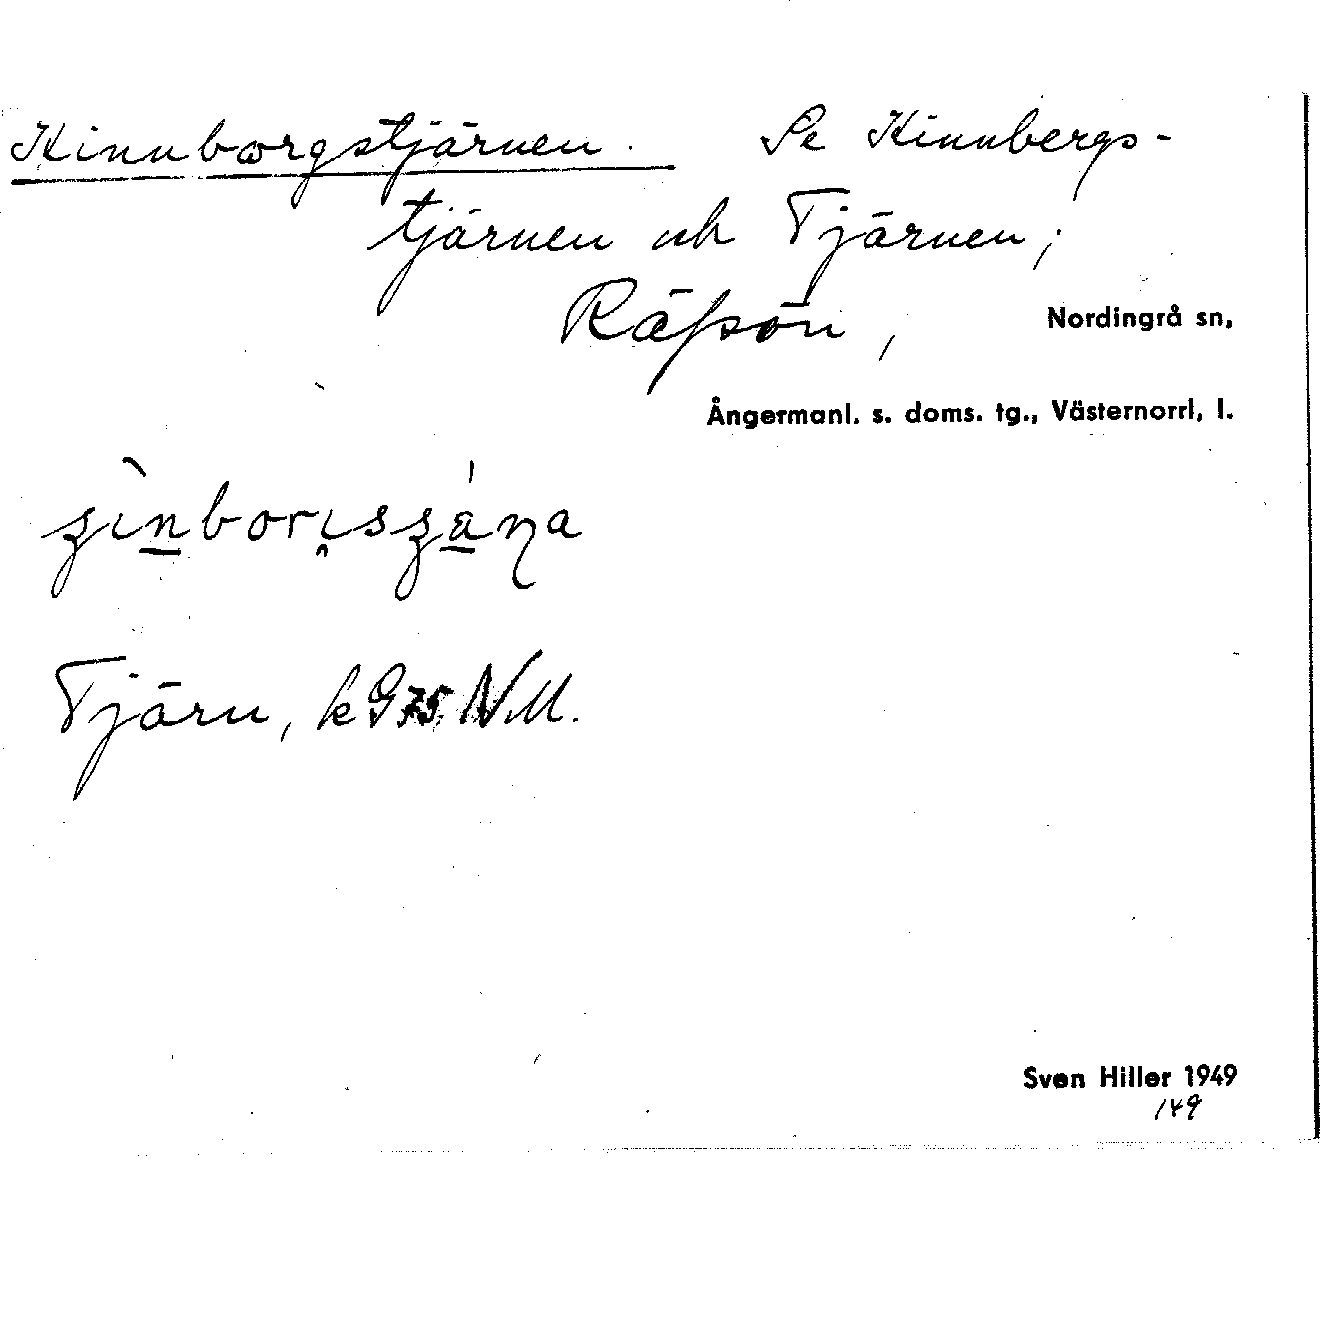 Kinnborgstjärnen. Se Kinnbergs-
tjärnen och Tjärnen;
Räfsön, Nordingrå sn,
Ångermanl. s. doms. tg., Västernorrl. l.
Tjärn, k G 75 NM.
Sven Hiller 1949
149